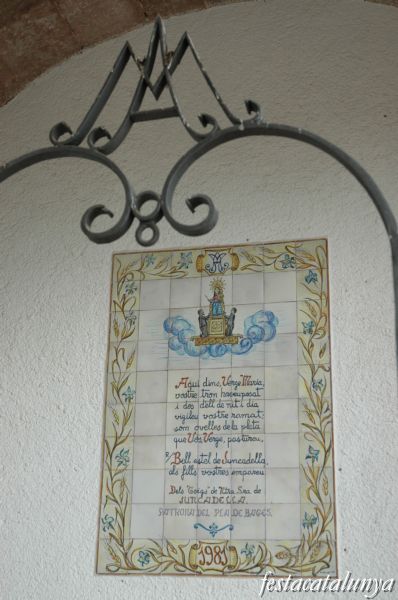 Aquí dins, Verge Maria,
vostre tron haveu posat
i des d'ell de nit i dia
vigileu vostre ramat
som ovelles de la pleta
que Vós, Verge, pasturau,
Bell estel de Juncadella,
als fills vostres empareu
Dels "Goigs" de Ntra. Sra. de
JUNCADELLA
PATRONA DEL PLA DE BAGES
1985
festacatalunya